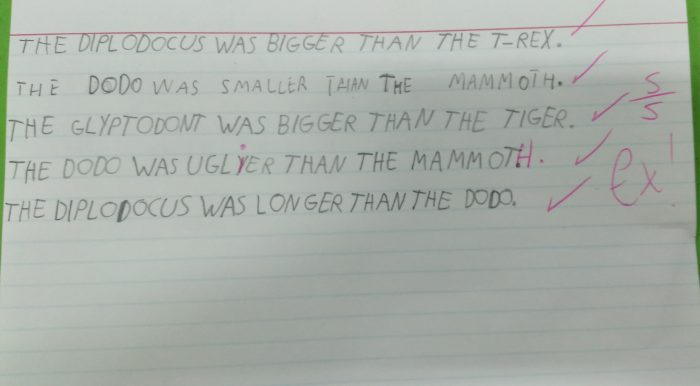 THE DIPLODOCUS WAS BIGGER THAN THE T-REX.
THE DODO WAS SMALLER THAN THE MAMMOTH.
THE GLYPTODONT WAS BIGGER THAN THE TIGER.
THE DODO WAS UGLIER THAN THE MAMMOTH.
THE DIPLODOCUS WAS LONGER THAN THE DODO.
5/5
Ex!